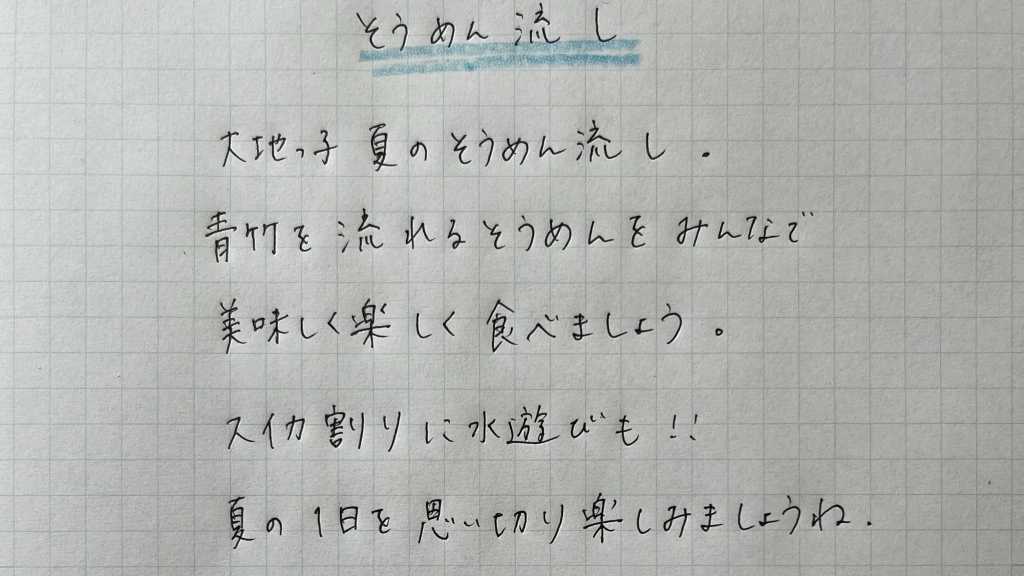 そうめん流し
大地っ子 夏のそうめん流し.
青竹を流れるそうめんをみんなで
美味しく楽しく食べましょう。
スイカ割りに水遊びも!!
夏の1日を思い切り楽しみましょうね.